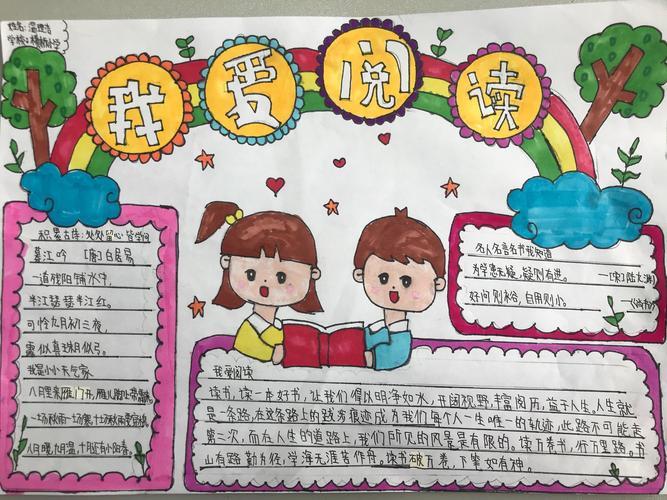 姓名:
学校:
我爱阅读
积累古诗:处处留心皆学问
暮江吟 [唐]白居易
一道残阳铺水中,
半江瑟瑟半江红。
可怜九月初三夜,
露似真珠月似弓。
我是小小天气家
八月里来雁门开,雁儿脚下带霜来。
一场秋雨一场寒,十场秋雨要穿棉
八月暖,九月温,十月还有小阳春
名人名言名书我知道
为学患无疑,疑则有进。
——[宋]陆九渊
好问则裕,自用则小。
我爱阅读
读书,读一本好书,让我们得以明净如水,开阔视野,丰富阅历,益于人生,人生就
是一条路,在这条路上的跋涉痕迹成为我们每个人一生唯一的轨迹,此路不可能走
第二次,而在人生的道路上,我们所见的风景是有限的。读万卷书,行万里路。书
山有路勤为径,学海无涯苦作舟。读书破万卷,下笔如有神。